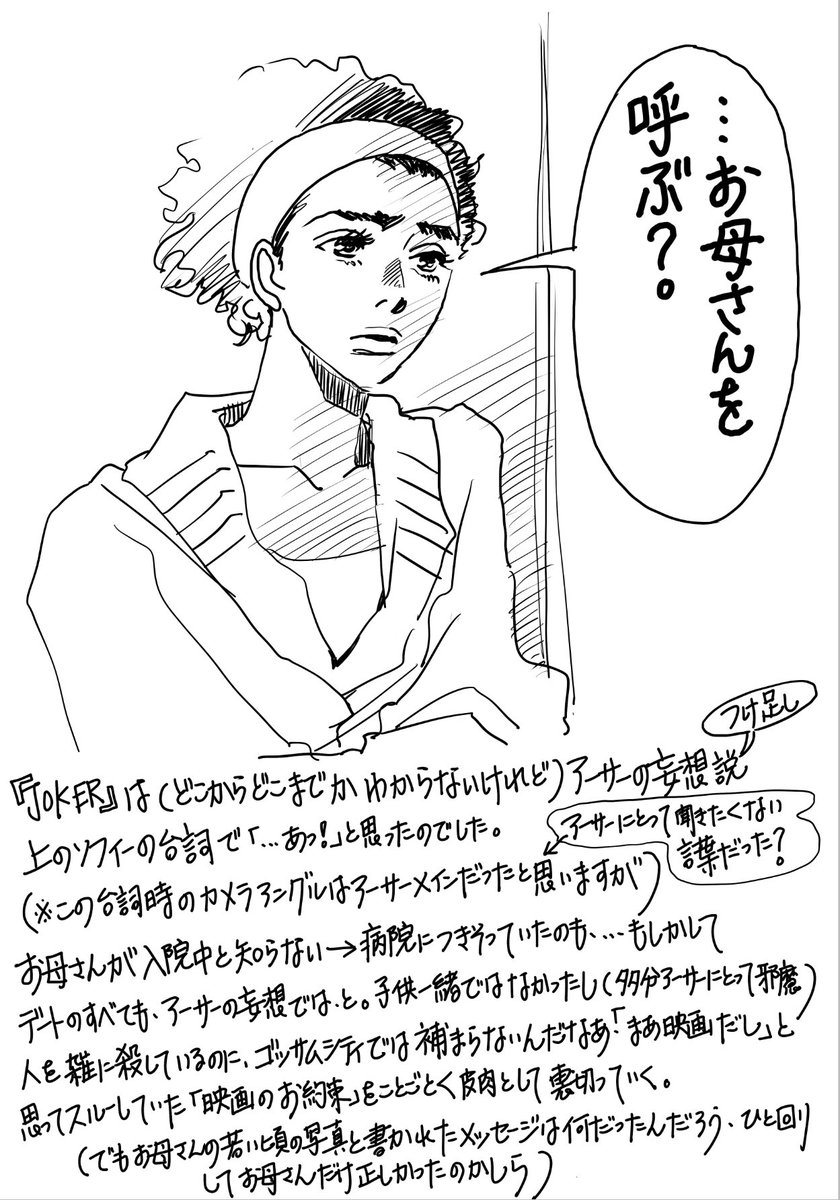 …お母さんを
呼ぶ?。
つけ足し
『JOKER』は(どこからどこまでかわからないけれど)アーサーの妄想説
上のソフィーの台詞で「…あっ!」と思ったのでした。
アーサーにとって聞きたくない
言葉だった?
(※この台詞時のカメラアングルはアーサーメインだったと思いますが)
お母さんが入院中と知らない→病院につきそっていたのも、…もしかして
デートのすべても、アーサーの妄想では、と。子供一緒ではなかったし(多分アーサーにとって邪魔)
人を雑に殺しているのに、ゴッサムシティでは補まらないんだなあ「まあ映画だし」と
思ってスルーしていた「映画のお約束」をことごとく皮肉として裏切っていく。
(でもお母さんの若い頃の写真と書かれたメッセージは何だったんだろう、ひと回り
してお母さんだけ正しかったのかしら)